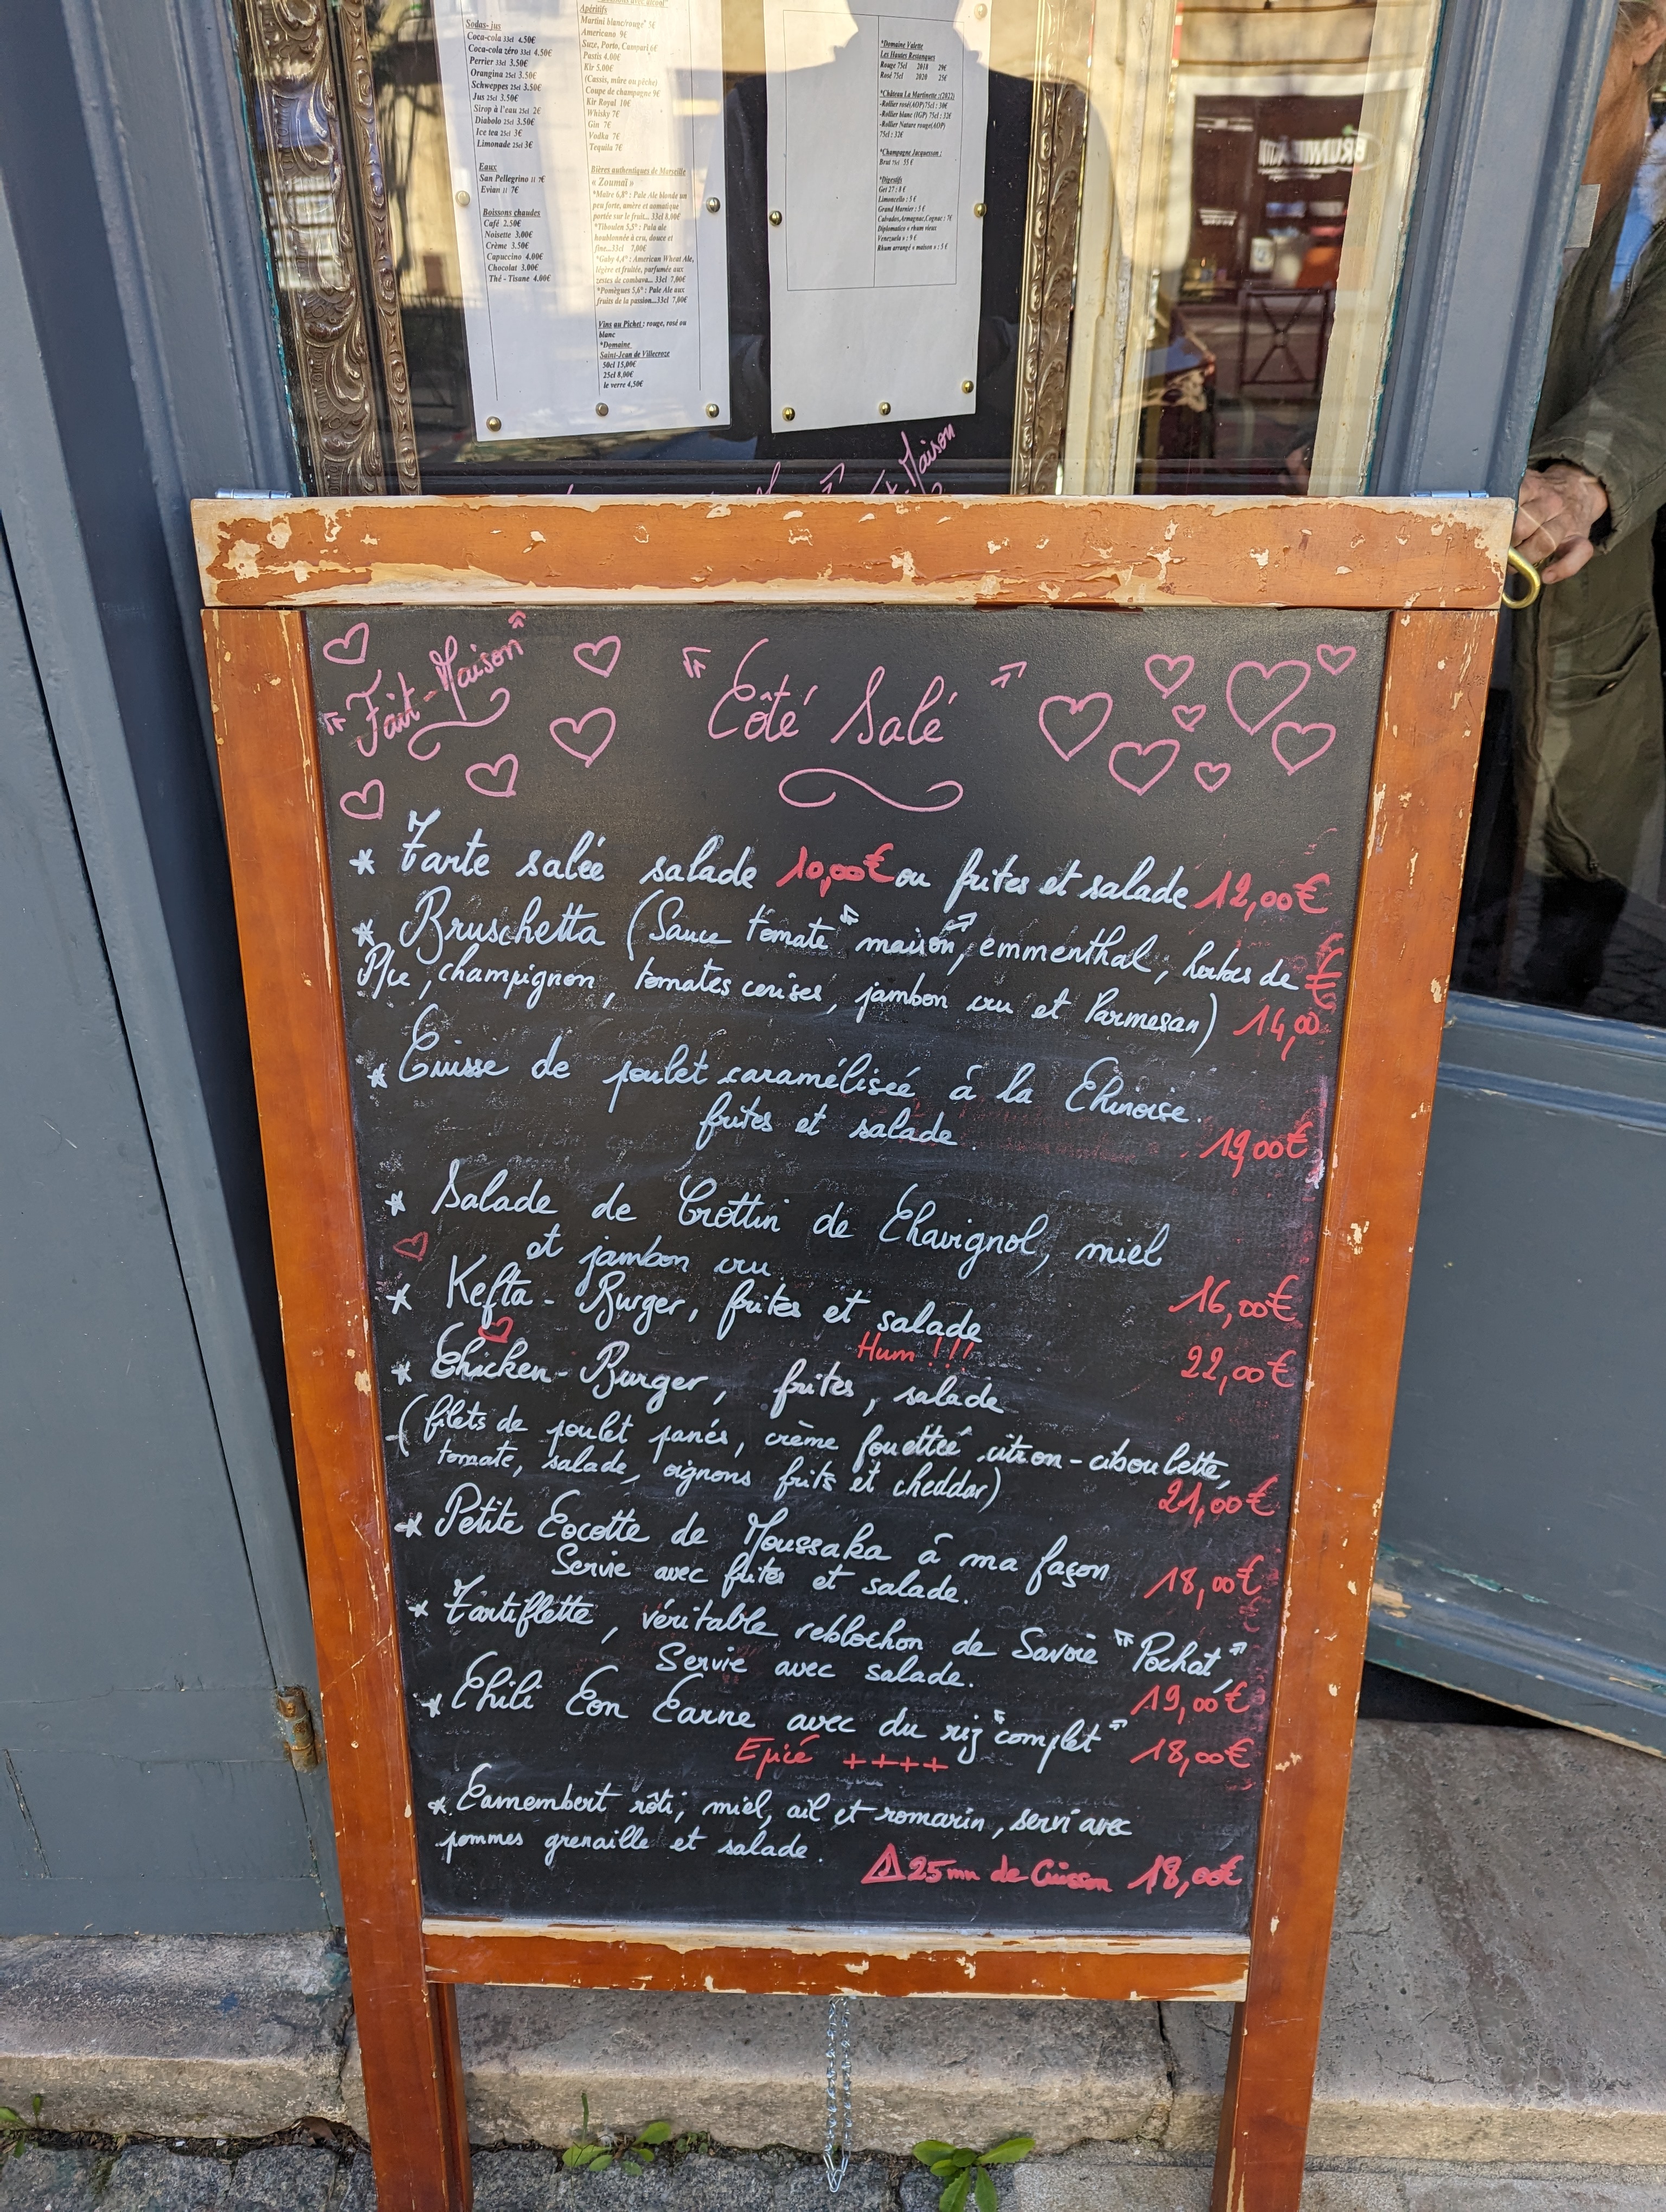 Sodas- jus
Coca-cola 33cl 4.50€
Coca-cola zéro 33cl 4,50€
Perrier 33cl 3.50€
Orangina 25cl 3.50€
Schweppes 25cl 3.50€
Jus 25cl 3.50€
Sirop à l'eau 25cl 2€
Diabolo 25cl 3.50€
Ice tea 25cl 3€
Limonade 25cl 3€
Eaux
San Pellegrino 1l 7€
Evian 1l 7€
Boissons chaudes
Café 2.50€
Noisette 3,00€
Crème 3.50€
Capuccino 4.00€
Chocolat 3.00€
Thé - Tisane 4.00€
Apéritifs
Martini blanc/rouge" 5€
Americano 9€
Suze, Porto, Campari 6€
Pastis 4.00€
Kir 5.00€
(Cassis, mûre ou pêche)
Coupe de champagne 9€
Kir Royal 10€
Whisky 7€
Gin 7€
Vodka 7€
Tequila 7€
Bières authentiques de Marseille
« Zoumaï »
*Maïre 6,8° : Pale Ale blonde un
peu forte, amère et aomatique
portée sur le fruit... 33cl 8,00€
*Tiboulen 5,5° : Pala ale
houblonnée à cru, douce et
fine...33cl 7,00€
*Gaby 4,4° : American Wheat Ale,
légère et fruitée, parfumée aux
zestes de combava... 33cl 7,00€
*Pomègues 5,6° : Pale Ale aux
fruits de la passion...33cl 7,00€
Vins au Pichet : rouge, rosé ou
blanc
*Domaine
Saint-Jean de Villecroze
50cl 15,00€
25cl 8,00€
le verre 4,50€
*Domaine Valette
Les Hautes Restanques
Rouge 75cl 2018 29€
Rosé 75cl 2020 25€
*Château La Martinette :(2022)
-Rollier rosé(AOP)75cl : 30€
-Rollier blanc (IGP) 75cl : 32€
-Rollier Nature rouge(AOP)
75cl : 32€
*Champagne Jacquesson :
Brut 75cl 55 €
*Digestifs
Get 27 : 8 €
Limoncello : 5 €
Grand Marnier : 5 €
Calvados,Armagnac,Cognac : 7€
Diplomatico « rhum vieux
Venezuela » : 9 €
Rhum arrangé « maison » : 5 €
Maison
"Fait-Maison"
"Côté Salé"
* Tarte salée salade 10,00€ ou frites et salade 12,00€
* Bruschetta (Sauce tomate "maison", emmenthal, herbes de
Pce, champignon, tomates cerises, jambon cru et Parmesan) 14,00 €
* Cuisse de poulet caramélisée à la Chinoise.
frites et salade 19,00€
* Salade de Crottin de Chavignol, miel
et jambon cru 16,00€
* Kefta - Burger, frites et salade 22,00€
Hum !!!
* Chicken - Burger, frites, salade
(filets de poulet panés, crème fouettée citron-ciboulette,
tomate, salade, oignons frits et cheddar) 21,00€
* Petite Cocotte de Moussaka à ma façon
Servie avec frites et salade. 18,00€
* Tartiflette, véritable reblochon de Savoie "Pochat",
Servie avec salade. 19,00€
* Chili Con Carne avec du riz "complet" 18,00€
Epicé ++++
* Camembert rôti, miel, ail et romarin, servi avec
pommes grenaille et salade.
25 mn de Cuisson 18,00€